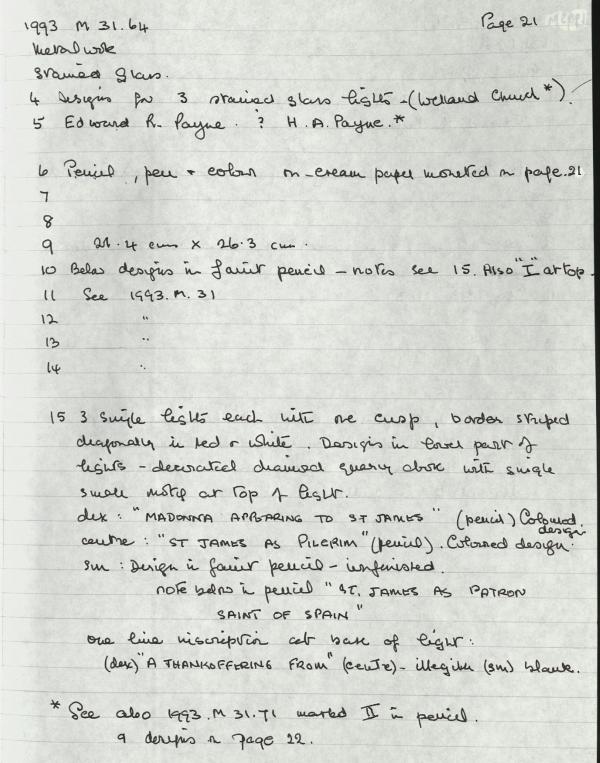 1993 M 31.64 Page 21
Metalwork
Stained Glass.
4 Designs for 3 stained glass lights - (Welland Church *)
5 Edward R. Payne. ? H.A. Payne. *
6 Pencil, pen + colour on cream paper mounted on page. 21
7
8
9 21.4 cms x 26.3 cm.
10 Below designs in faint pencil - notes see 15. Also "I" at top -
11 See 1993.M.31
12 "
13 "
14 "
15 3 single lights each with one cusp, border striped
diagonally in red & white. Designs in lower part of
lights - decorated diamond quarry above with single
small motif at top of light.
dex : "MADONNA APPEARING TO ST JAMES" (pencil) Coloured design.
centre : "ST JAMES AS PILGRIM" (pencil). Coloured design.
sin : Design in faint pencil - unfinished.
note below in pencil "ST. JAMES AS PATRON
SAINT OF SPAIN"
one line inscription at base of light :
(dex) "A THANKOFFERING FROM" (centre) - illegible (sin) blank.
* See also 1993.M 31.71 marked II in pencil.
9 designs on page 22.